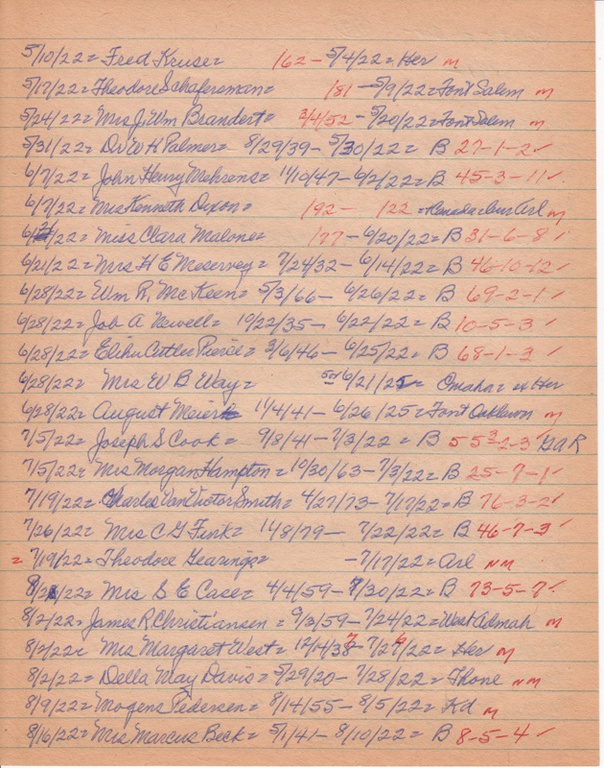 5/10/22 = Fred Kruse = 162 - 5/4/22 = Her M
5/17/22 = Theodore Schafersman = 181 - 5/9/22 = Font Salem M
5/24/22 = Mrs J. Wm Brandert = 3/4/52 - 5/20/22 = Font Salem M
5/31/22 = Dr W H Palmer = 8/29/39 - 5/30/22 = B 27-1-2 ✓
6/7/22 = John Henry Mehrens = 1/10/47 - 6/2/22 = B 45-3-11 ✓
6/7/22 = Mrs Kenneth Dixon = 192- 122 = Arl M
6/ /22 = Miss Clara Malone = 177 - 6/20/22 = B 31-6-8 ✓
6/21/22 = Mrs H E Meservey = 7/24/32 - 6/14/22 = B 46-10-12 ✓
6/28/22 = Wm R. McKeen = 5/3/66 - 6/26/22 = B 69-2-1 ✓
6/28/22 = Job A Newell = 10/22/35 - 6/22/22 = B 10-5-3 ✓
6/28/22 = Elihu Cutler Pierce = 3/6/46 - 6/25/22 = B 68-1-3 ✓
6/28/22 = Mrs W B Way = 6/21/2 = Omaha = ex Her
6/28/22 = August Meier = 11/4/41 - 6/26/25 = Font M
7/5/22 = Joseph S Cook = 9/8/41 - 7/3/22 = B 5 -2-3 GAR
7/5/22 = Mrs Morgan Hampton = 10/30/63 - 7/3/22 = B 25-7-1 ✓
7/19/22 = Charles Van Victor Smith = 4/27/73 - 7/17/22 = B 76-3-2 ✓
7/26/22 = Mrs C G Fink = 11/8/79 - 7/22/22 = B 46-7-3 ✓
= 7/19/22 = Theodore Gearing = - 7/17/22 = Arl NM
8/2/22 = Mrs S E Case = 4/4/59 - 7/30/22 = B 73-5-7 ✓
8/2/22 = James R Christiansen = 9/3/59 - 7/24/22 = West Admah M
8/2/22 = Mrs Margaret West = 12/14/38 - 7/2 /22 = Her M
8/2/22 = Della May Davis = 5/29/20 - 7/28/22 = Thone NM
8/9/22 = Mogens Pedersen = 8/14/55 - 8/5/22 = Kd M
8/16/22 = Mrs Marcus Beck = 5/1/41 - 8/10/22 = B 8-5-4 ✓